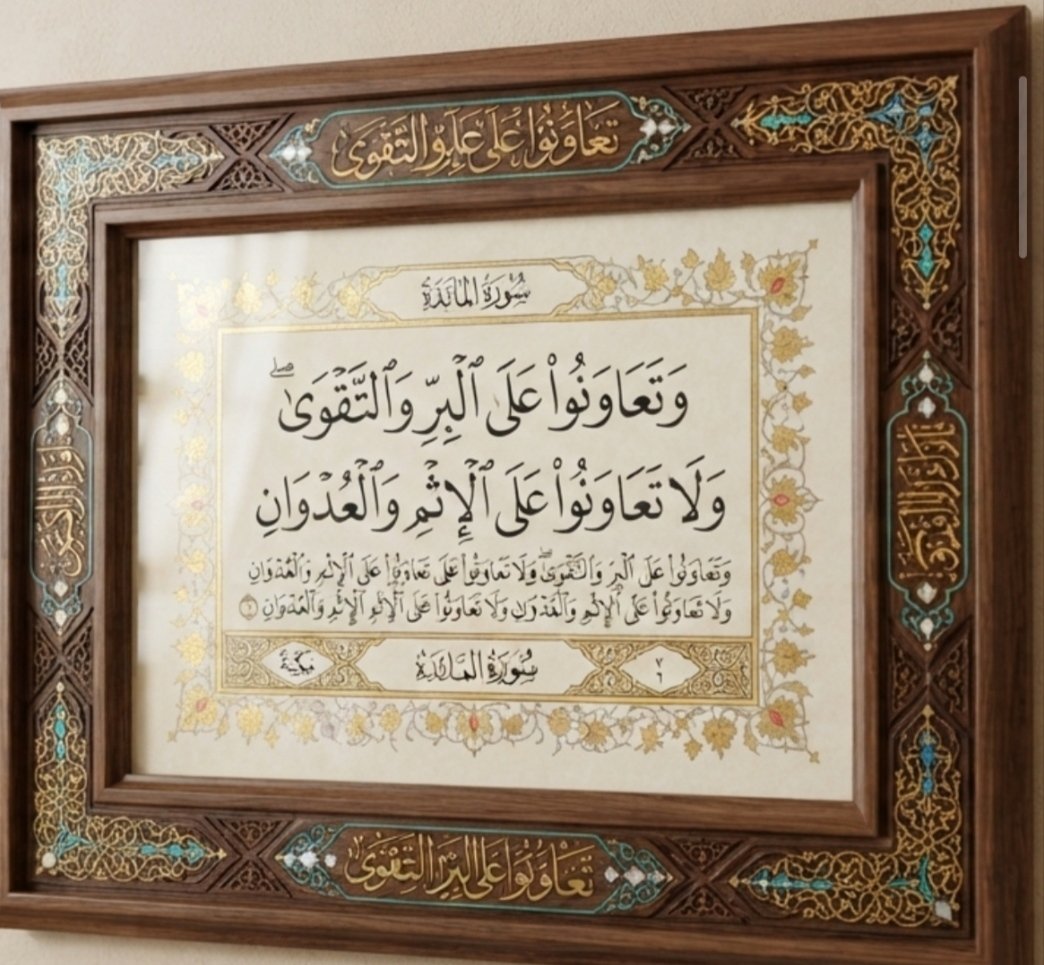 تَعَاوَنُوا عَلَى عَلَبِرِ وَالتَّقْوَى
سُورَةُ المَائدَة
وَتَعَاوَنُوا۟ عَلَى ٱلْبِرِّ وَٱلتَّقْوَىٰ ۖ
وَلَا تَعَاوَنُوا۟ عَلَى ٱلْإِثْمِ وَٱلْعُدْوَانِ
وَتَعَاوَنُوا۟ عَلَى ٱلْبِرِّ وَٱلتَّقْوَىٰ ۖ وَلَا تَعَاوَنُوا۟ عَلَى تَعَاوَنُوا۟ عَلَى ٱلْإِثْمِ وَٱلْعُدْوَانِ
وَلَا تَعَاوَنُوا۟ عَلَى ٱلْإِثْمِ وَٱلْعُدْوَانِ وَلَا تَعَاوَنُوا۟ عَلَى ٱلْإِثْمِ ٱلْإِثْمِ وَٱلْعُدْوَانِ
سُورَةُ المَائدَة
٧
٦
تَعَاوَنُوا عَلَى البِرِّ التَّقْوَى